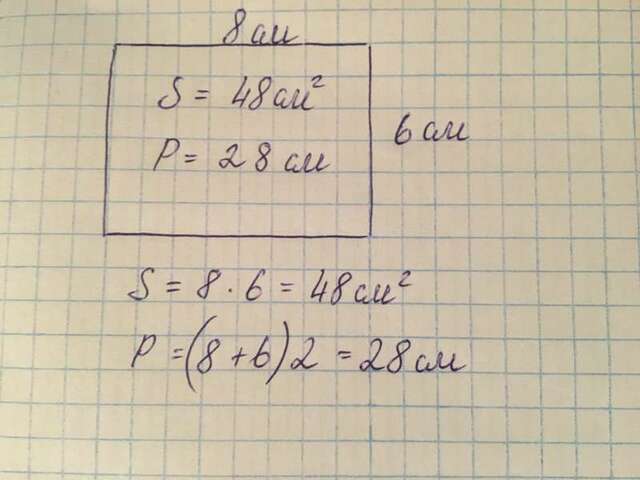 8 см
S = 48 см²
P = 28 см
6 см
S = 8 · 6 = 48 см²
P = (8 + 6) 2 = 28 см